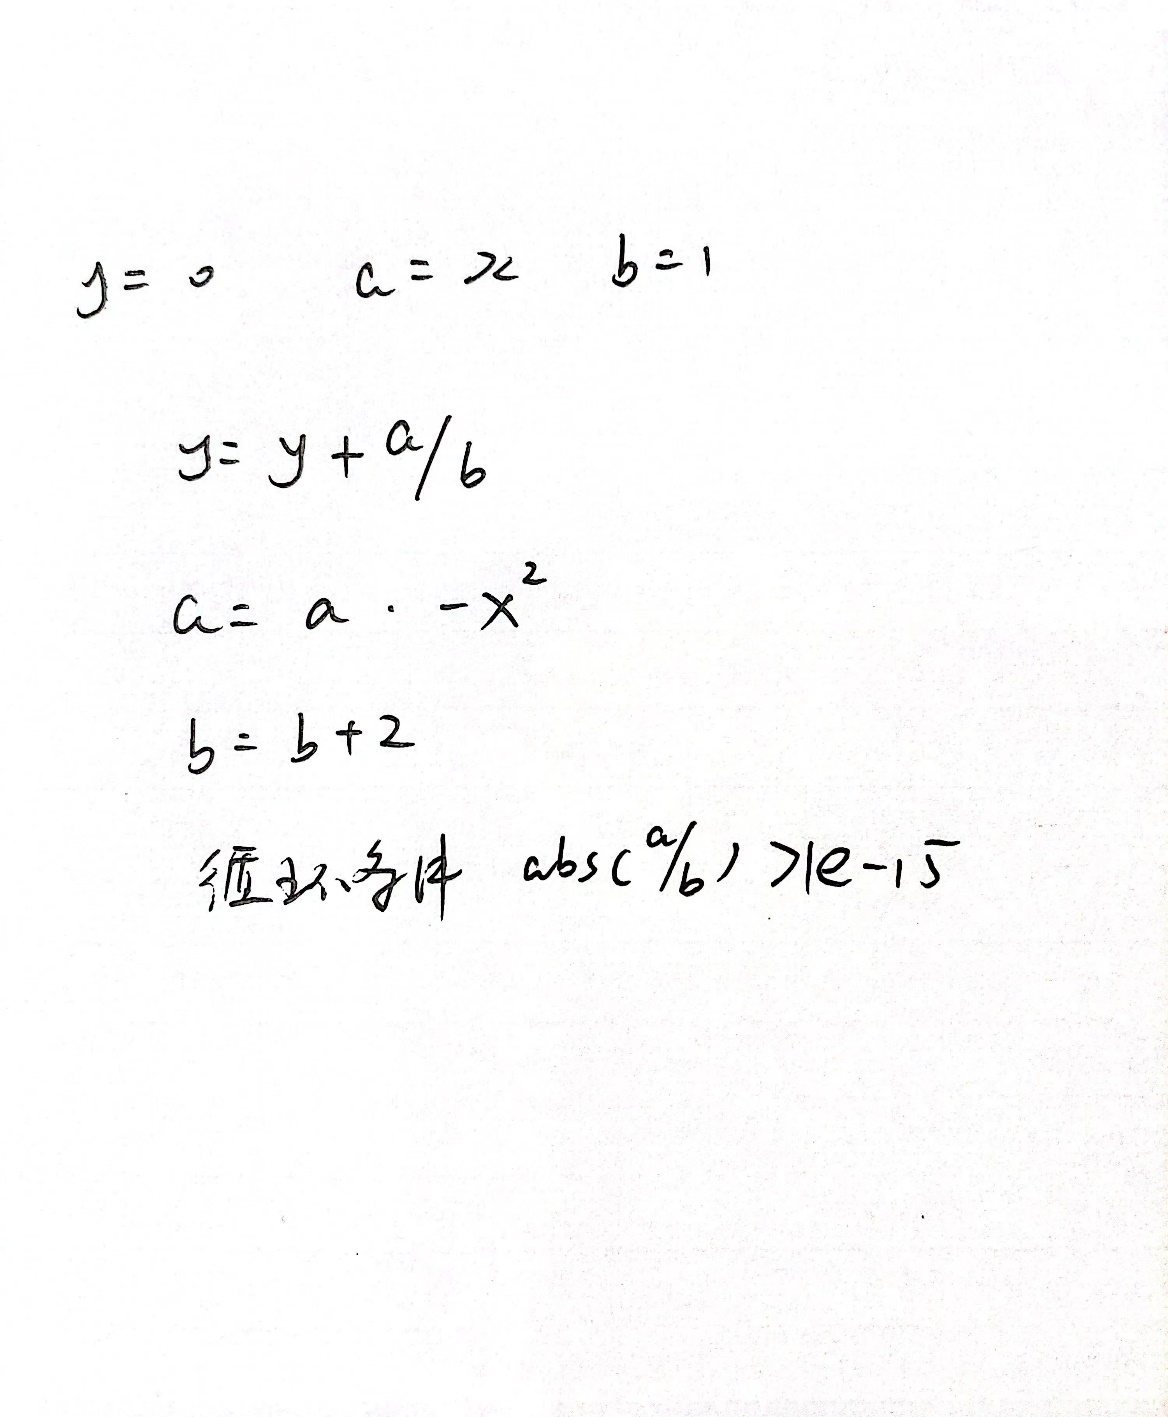 y = 0 a = x b = 1
y = y + a/b
a = a · -x²
b = b + 2
循环条件 abs(a/b) > 1e-15